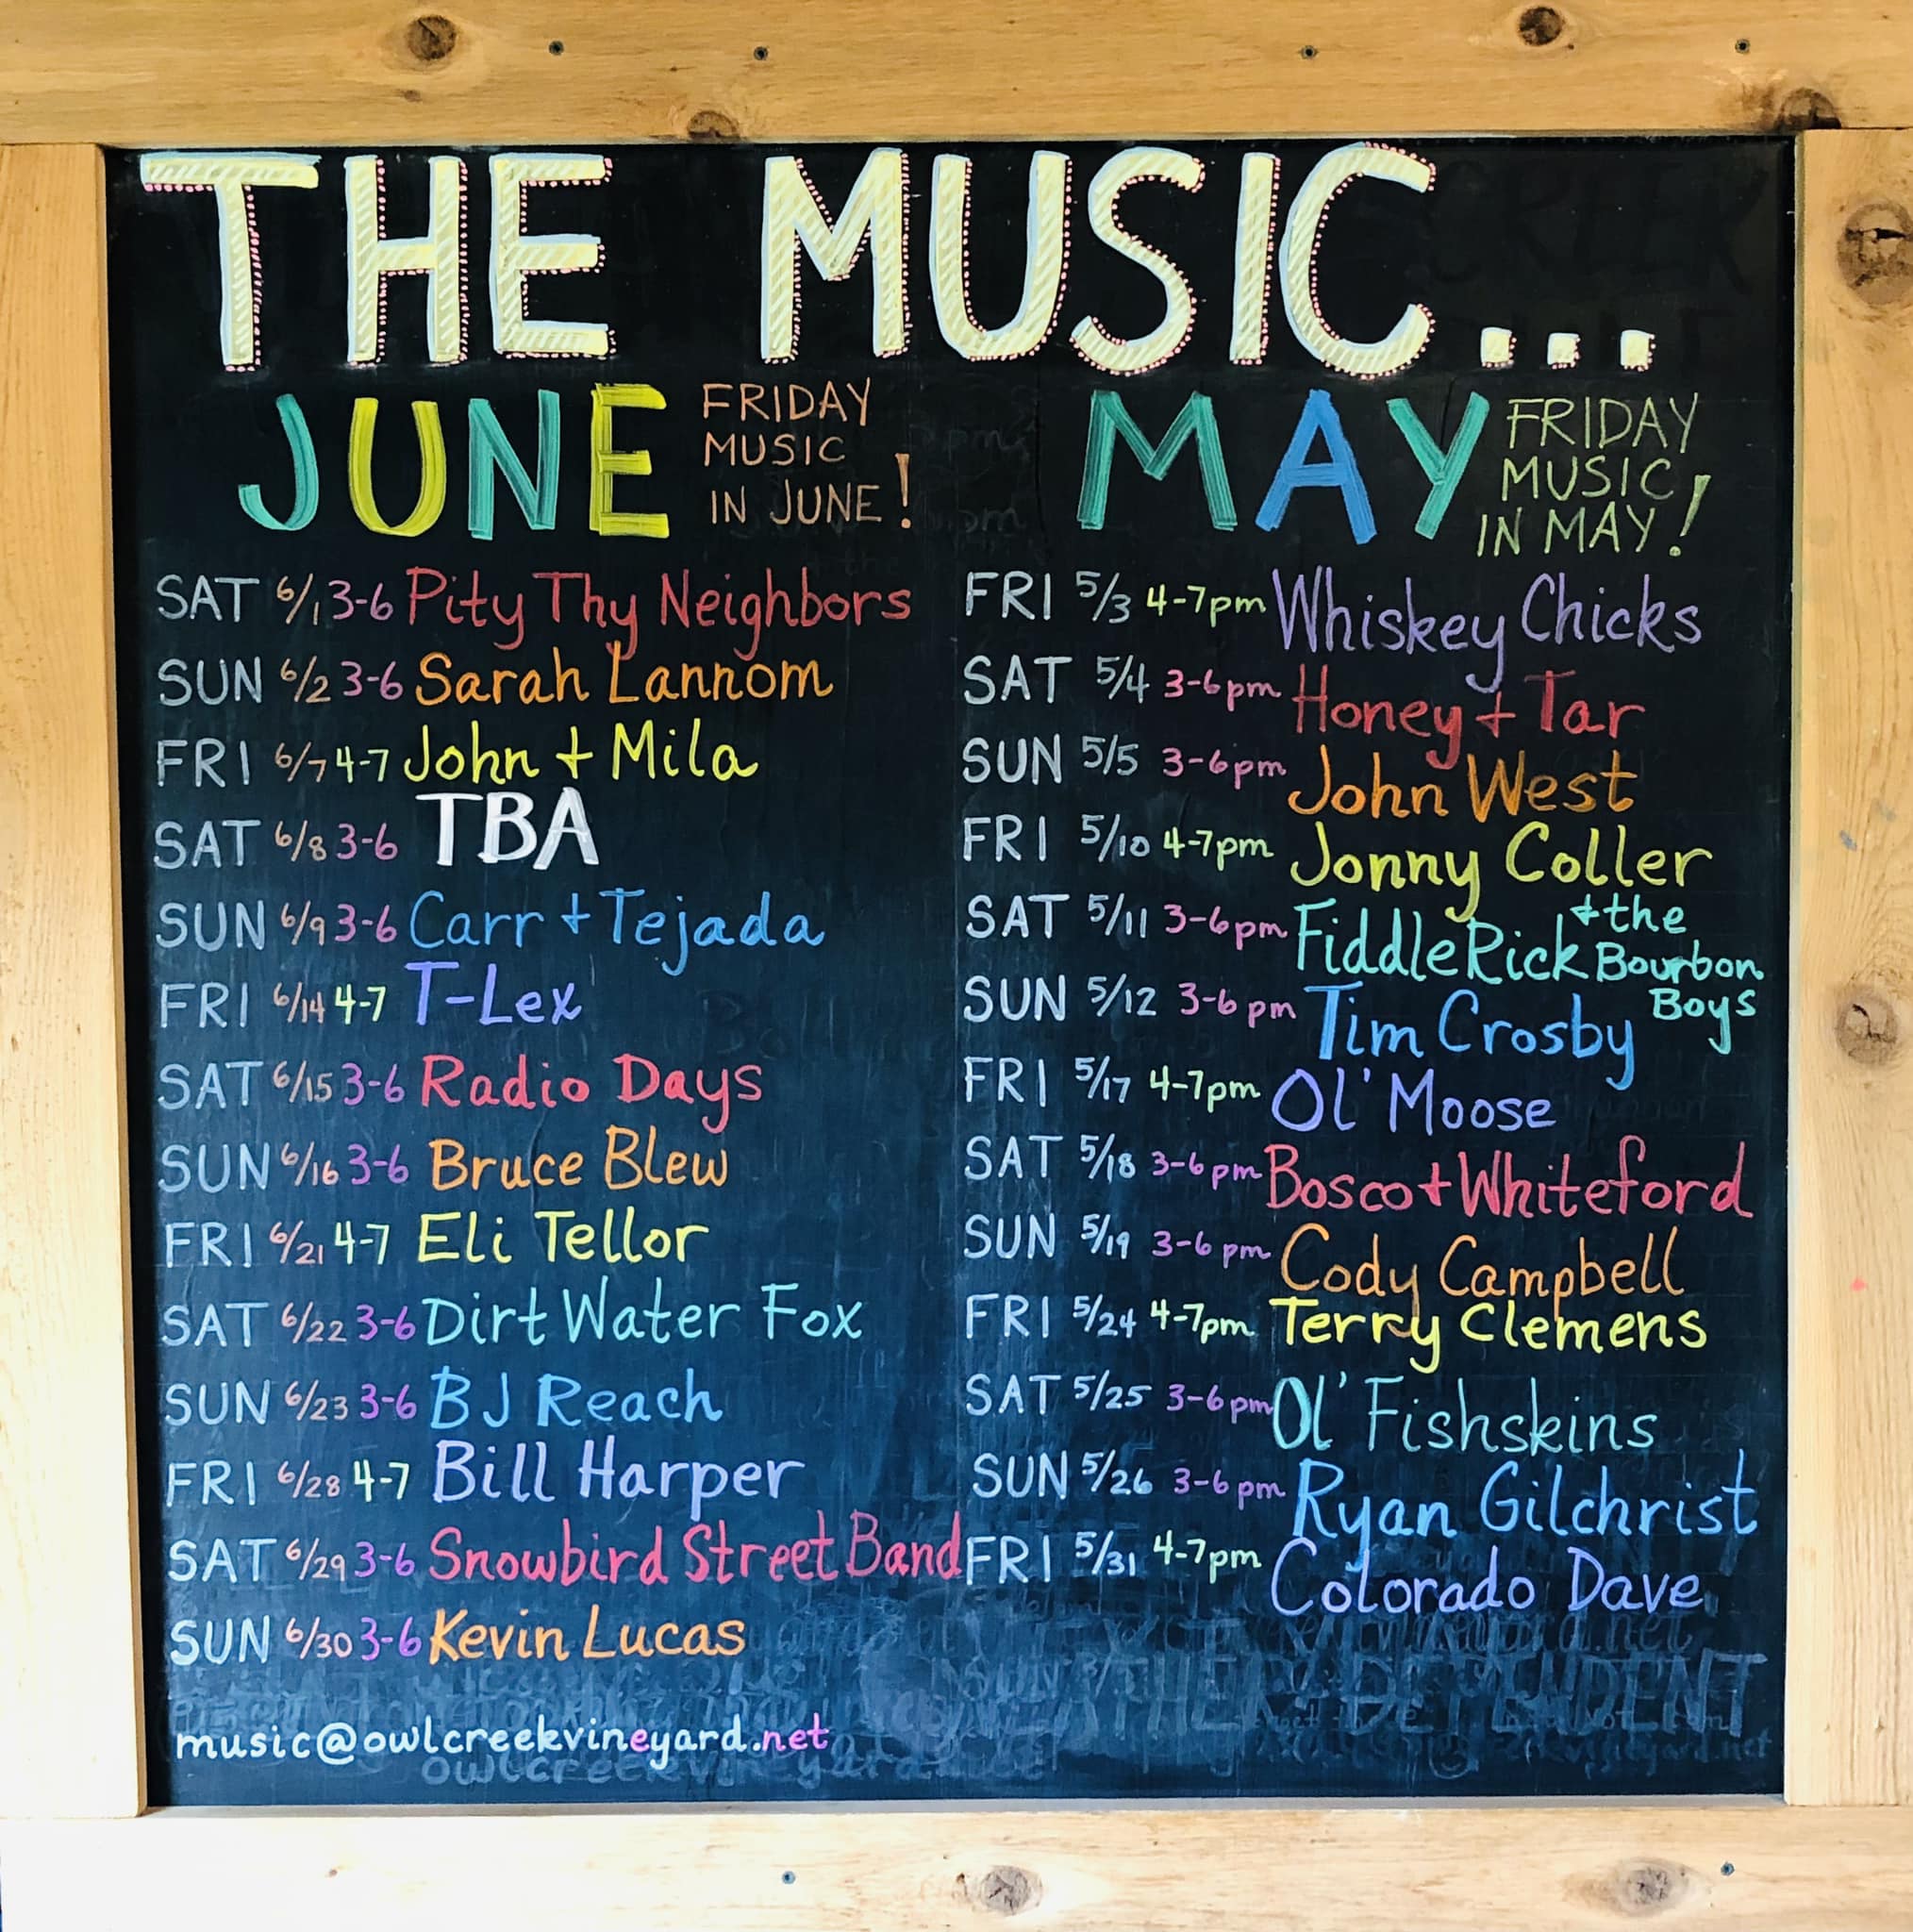 THE MUSIC...
JUNE
FRIDAY
MUSIC
IN JUNE!
SAT 6/1 3-6 Pity Thy Neighbors
SUN 6/2 3-6 Sarah Lannom
FRI 6/7 4-7 John + Mila
SAT 6/8 3-6 TBA
SUN 6/9 3-6 Carr + Tejada
FRI 6/14 4-7 T-Lex
SAT 6/15 3-6 Radio Days
SUN 6/16 3-6 Bruce Blew
FRI 6/21 4-7 Eli Tellor
SAT 6/22 3-6 Dirt Water Fox
SUN 6/23 3-6 BJ Reach
FRI 6/28 4-7 Bill Harper
SAT 6/29 3-6 Snowbird Street Band
SUN 6/30 3-6 Kevin Lucas
music@owlcreekvineyard.net
MAY
FRIDAY
MUSIC
IN MAY!
FRI 5/3 4-7pm Whiskey Chicks
SAT 5/4 3-6pm Honey + Tar
SUN 5/5 3-6pm John West
FRI 5/10 4-7pm Jonny Coller
SAT 5/11 3-6pm FiddleRick + the
Bourbon
Boys
SUN 5/12 3-6pm Tim Crosby
FRI 5/17 4-7pm Ol' Moose
SAT 5/18 3-6pm Bosco + Whiteford
SUN 5/19 3-6pm Cody Campbell
FRI 5/24 4-7pm Terry Clemens
SAT 5/25 3-6pm Ol' Fishskins
SUN 5/26 3-6pm Ryan Gilchrist
FRI 5/31 4-7pm Colorado Dave